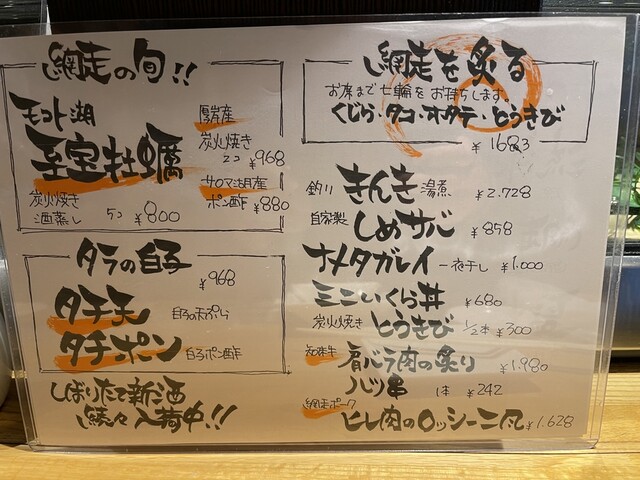 網走の旬!!
モコト湖
至宝牡蠣
炭火焼き
酒蒸し 5コ ¥800
厚岸産
炭火焼き
2コ ¥968
サロマ湖産
ポン酢 ¥880
タラの白子
¥968
タチ天 白子の天ぷら
タチポン 白子ポン酢
しぼりたて新酒
続々入荷中!!
網走を炙る
お席まで七輪をお持ちします
くじら・タコ・ホタテ・とうきび
¥1683
釣り きんき 湯煮 ¥2.728
自家製 しめサバ ¥858
ナメタガレイ 一夜干し ¥1.000
ミニいくら丼 ¥680
炭火焼き とうきび 1/2本 ¥300
知床牛 肩バラ肉の炙り ¥1.980
ハツ串 1本 ¥242
網走ポーク
ヒレ肉のロッシーニ風 ¥1.628